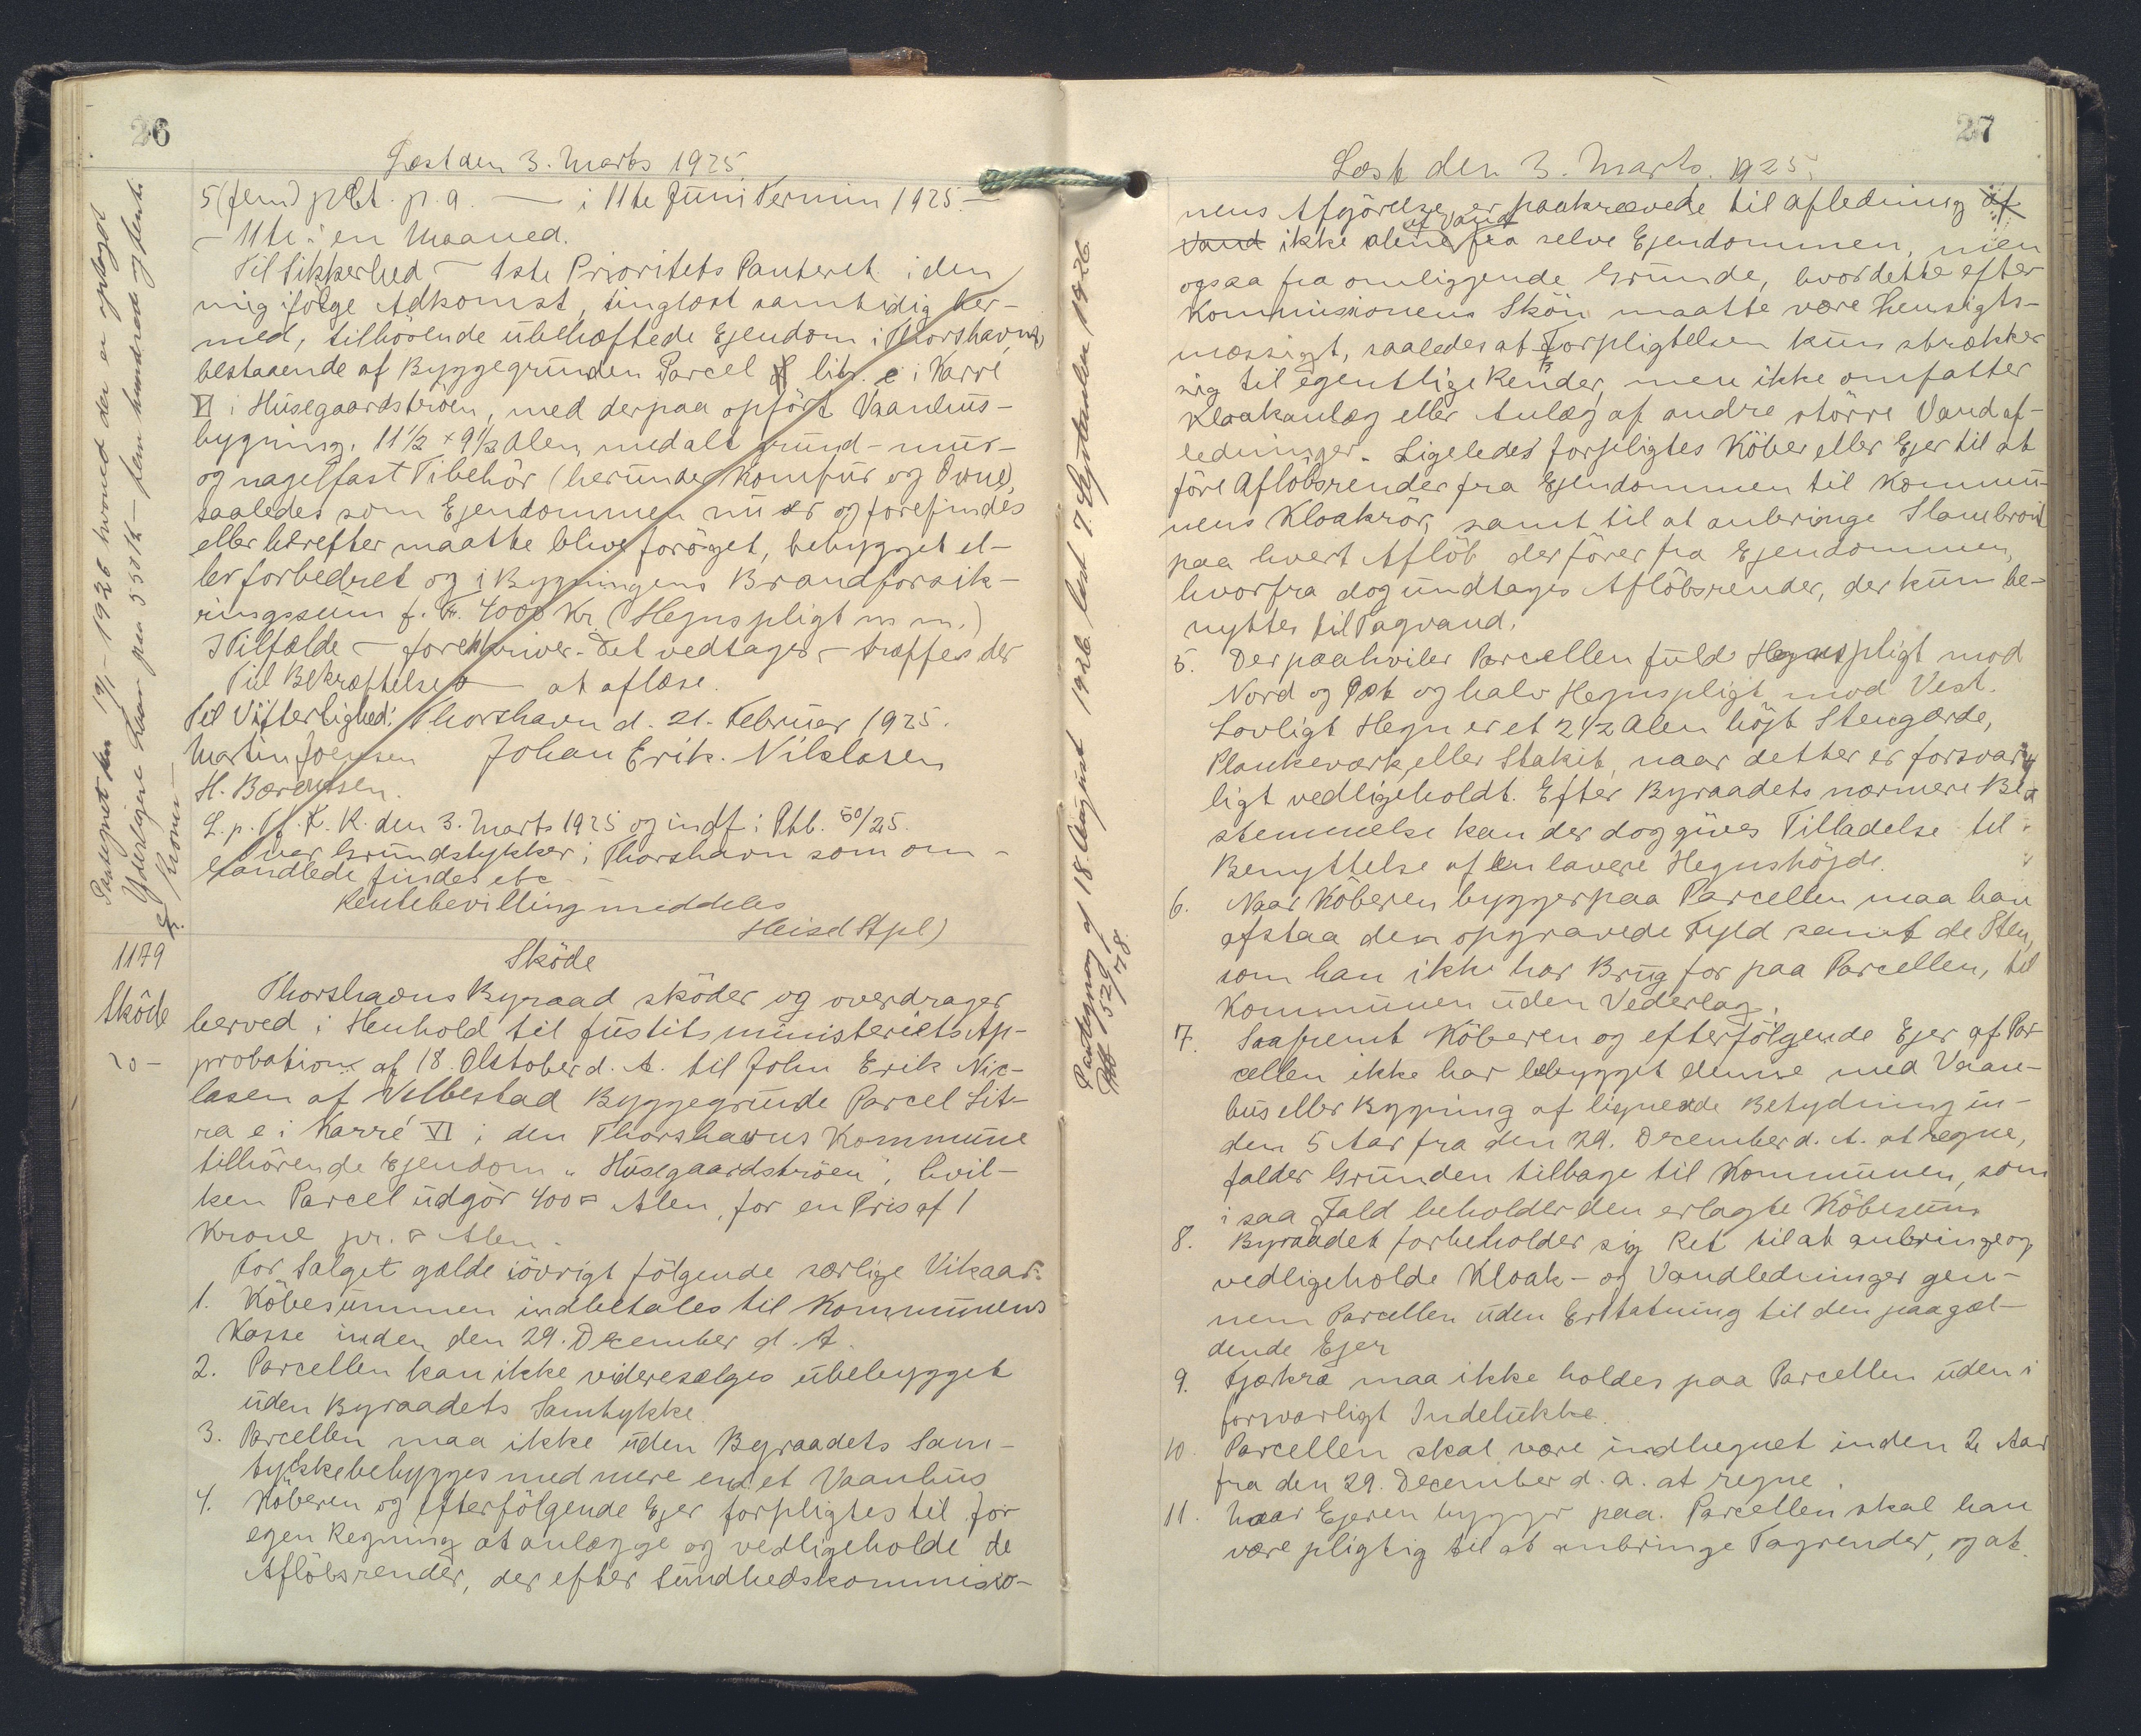 26
Læst den 3. Marts 1925.
5 (fem) pCt. p. a. — i 11te Juni Termin 1925 —
— 11te i en Maaned.
Til Sikkerhed — 1ste Prioritets Panteret i den
mig ifølge Adkomst, tinglæst samtidig her-
med, tilhørende ubehæftede Ejendom i Thorshavn,
bestaaende af Byggegrunden Parcel litr. e i Karré
VI i Húsegaardstrøen, med derpaa opført Vaanhus-
bygning, 11½ x 9½ Alen, med alt grund- mur-
og nagelfast Tibehör (herunder Komfur og Ovne),
saaledes som Ejendommen nu er og forefindes
eller herefter maatte blive forøget, bebygget el-
ler forbedret og i Bygningens Brandforsik-
ringssum f. T. 4000 Kr. (Hegnspligt m m.)
I Tilfælde — foreskriver. Det vedtages — træffes der
Til Bekræftelse — at aflæse.
Til Vitterlighed: Thorshavn d. 21. Februar 1925.
Martin Joensen Johan Erik Niklasen
H. Bærentsen.
L. p. f. F. R. den 3. Marts 1925 og indf. i Ptb. 50/25.
over Grundstykker i Thorshavn som om-
handlede findes etc
Rentebevilling meddeles
Heisel Stpl)
Pantegnet den 19/1 - 1926 hvorved der er optaget
Yderligere Laan paa 550 Kr — fem hundrede og femti
Kroner —
1179
Sköde
20 —
Sköde
Thorshavns Byraad sköder og overdrager
herved i Henhold til Justitsministeriets Ap-
probation af 18. Oktober d. A. til John Erik Nic-
lasen af Velbestad Byggegrunde Parcel Lit-
ra e i Karré VI i den Thorshavns Kommune
tilhörende Ejendom "Húsegaardströen", hvil-
ken Parcel udgör 400 □ Alen, for en Pris af 1
Krone pr. □ Alen.
For Salget gælde iövrigt fölgende særlige Vilkaar:
1. Köbesummen indbetales til Kommunens
Kasse inden den 29. December d. A.
2. Parcellen kan ikke videresælges ubebygget
uden Byraadets Samtykke.
3. Parcellen maa ikke uden Byraadets Sam-
tykke bebygges med mere end et Vaanhus
4. Köberen og efterfölgende Ejer forpligtes til for
egen Regning at anlægge og vedligeholde de
Aflöbsrender, der efter Sundhedskommissio-
Paategning af 18. August 1926 læst 7. September 1926.
Ptb 529/78.
27
Læst den 3. Marts. 1925.
nens Afgörelse er paakrævede til Afledning af
Vand ikke alene af Vand fra selve Ejendommen, men
ogsaa fra omliggende Grunde, hvor dette efter
Kommissionens Skön maatte være hensigts-
mæssigt, saaledes at Forpligtelsen kun strækker
sig til egentlige Render, men ikke omfatter
Kloakanlæg eller Anlæg af andre större Vandaf-
ledninger. Ligeledes forpligtes Köber eller Ejer til at
före Aflöbsrender fra Ejendommen til Kommu-
nens Kloakrör, samt til at anbringe Slambrönd
paa hvert Aflöb der förer fra Ejendommen,
hvorfra dog undtages Aflöbsrender, der kun be-
nyttes til Tagvand.
5. Der paahviler Parcellen fuld Hegnspligt mod
Nord og Öst og halv Hegnspligt mod Vest.
Lovligt Hegn er et 2½ Alen höjt Stengærde,
Plankeværk eller Stakit, naar dette er forsvar-
ligt vedligeholdt. Efter Byraadets nærmere Be-
stemmelse kan der dog gives Tilladelse til
Benyttelse af en lavere Hegnshöjde.
6. Naar Köberen bygger paa Parcellen maa han
afstaa den opgravede Fyld samt de Sten,
som han ikke har Brug for paa Parcellen, til
Kommunen uden Vederlag.
7. Saafremt Köberen og efterfölgende Ejer af Par-
cellen ikke har bebygget denne med Vaan-
hus eller Bygning af lignende Betydning in-
den 5 Aar fra den 29. December d. A. at regne,
falder Grunden tilbage til Kommunen, som
i saa Fald beholder den erlagte Köbesum
8. Byraadet forbeholder sig Ret til at anbringe og
vedligeholde Kloak- og Vandledninger gen-
nem Parcellen uden Erstatning til den paagæl-
dende Ejer
9. Fjærkræ maa ikke holdes paa Parcellen uden i
forsvarligt Indelukke.
10. Parcellen skal være indhegnet inden 2 Aar
fra den 29. December d. a. at regne.
11. Naar Ejeren bygger paa Parcellen skal han
være pligtig til at anbringe Tagrender, og at